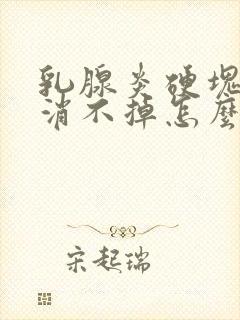 乳腺炎硬塊
消不掉怎麼
宋起瑞